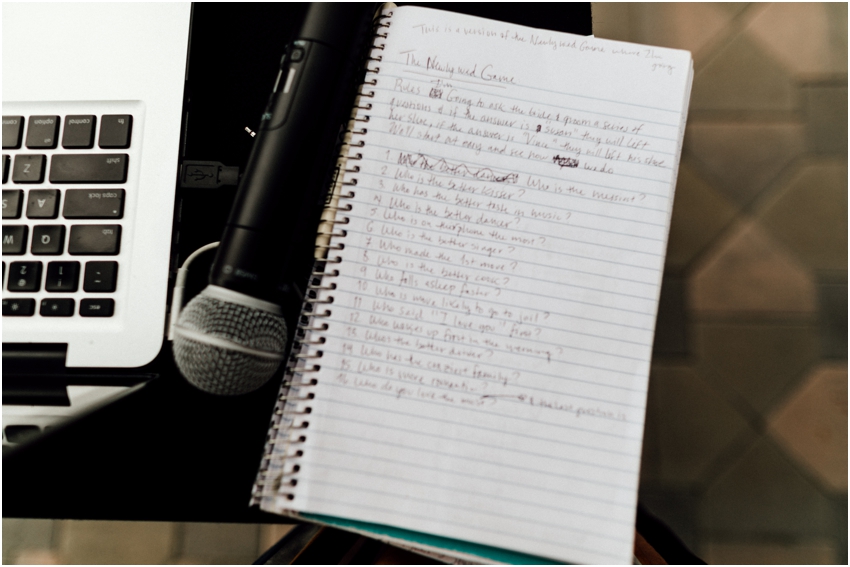 This is a version of the Newlywed Game where I'm
going
The Newlywed Game
Rules I'm Going to ask the bride & groom a series of
questions & if the answer is "Susan" they will left
her shoe, if the answer is "Vince" they will lift his shoe
We'll start out easy and see how we do
1 Who is the messiest?
2 Who is the better kisser?
3 Who has the better taste in music?
4 Who is the better dancer?
5 Who is on the phone the most?
6 Who is the better singer?
7 Who made the 1st move?
8 Who is the better cook?
9 Who falls asleep faster?
10 Who is more likely to go to jail?
11 Who said "I love you" first?
12 Who wakes up first in the morning?
13 Whos the better driver?
14 Who has the craziest family?
15 Who is more romantic?
16 Who do you love the most? the last question is
fn
control
option
alt
shift
Z
caps lock
A
tab
Q
W
esc